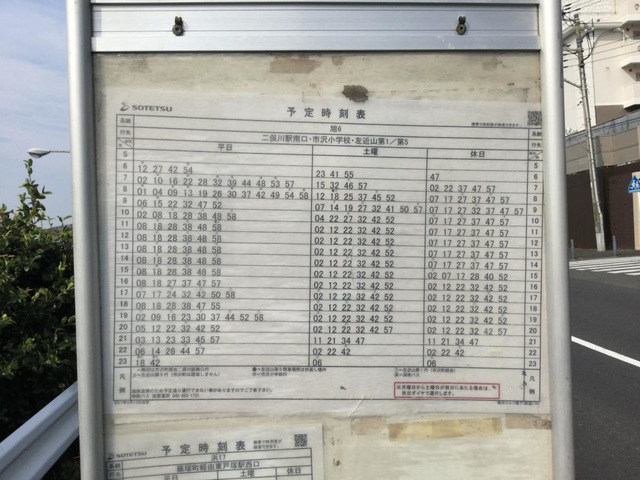 SOTETSU 予定時刻表
系統 旭6
行先 二俣川駅南口・市沢小学校・左近山第1／第5
時 平日 土曜 休日
5
6 12 27 42 54 23 41 55 47
7 02 10 16 22 28 32 39 44 48 53 57 15 32 46 57 02 22 37 47 57
8 01 04 09 13 19 26 30 37 42 49 54 58 12 18 25 37 45 52 07 17 27 37 47 57
9 06 15 22 32 47 52 07 14 19 27 32 41 50 57 07 17 27 32 37 47 57
10 02 08 18 28 38 48 58 04 22 27 32 42 52 07 17 27 37 47 57
11 08 18 28 38 48 58 02 12 22 32 42 52 07 17 27 37 47 57
12 08 18 28 38 48 58 02 12 22 32 42 52 07 17 27 37 47 57
13 08 18 28 38 48 58 02 12 22 32 42 52 07 17 27 37 47 57
14 08 18 28 38 48 58 02 12 22 32 42 52 07 17 27 37 47 57
15 08 18 28 38 48 58 02 12 22 32 42 52 02 07 13 28 40 52
16 08 18 27 37 47 57 02 12 22 32 42 52 02 12 22 32 42 52
17 07 17 24 32 42 50 58 02 12 22 32 42 52 02 12 22 32 42 52
18 08 18 28 38 47 55 02 12 22 32 42 52 02 12 22 32 42 52
19 02 09 16 23 30 37 44 52 58 02 12 22 32 42 52 02 12 22 32 42 52
20 05 12 22 32 42 52 02 12 22 32 42 52 02 12 22 32 42 52
21 03 13 23 33 45 57 11 21 34 47 11 21 34 47
22 06 14 26 44 57 02 22 42 02 22 42
23 18 42 06 06
凡例
※月曜日から土曜日が祝日にあたる場合は、
休日ダイヤで運行します。
SOTETSU 予定時刻表
系統 浜17
行先 藤塚町経由東戸塚駅西口
平日 土曜 休日